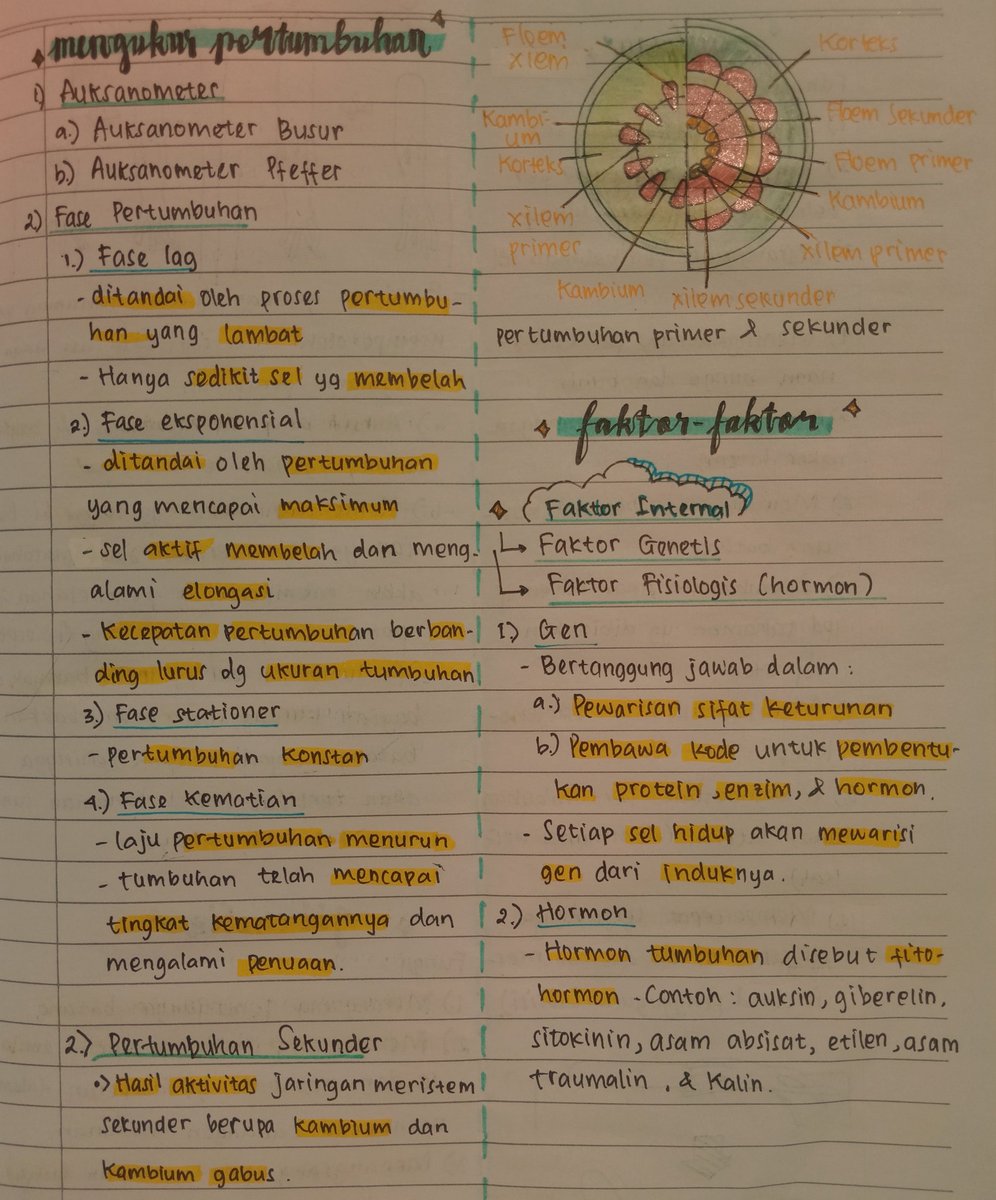 mengukur pertumbuhan
1) Auksanometer
a.) Auksanometer Busur
b.) Auksanometer Pfeffer
2) Fase Pertumbuhan
1.) Fase lag
- ditandai oleh proses pertumbu-
han yang lambat
- Hanya sedikit sel yg membelah
2.) Fase eksponensial
- ditandai oleh pertumbuhan
yang mencapai maksimum
- sel aktif membelah dan meng-
alami elongasi
- Kecepatan pertumbuhan berban-
ding lurus dg ukuran tumbuhan
3.) Fase stationer
- pertumbuhan konstan
4.) Fase Kematian
- laju pertumbuhan menurun
- tumbuhan telah mencapai
tingkat kematangannya dan
mengalami penuaan.
2.) Pertumbuhan Sekunder
•) Hasil aktivitas jaringan meristem
sekunder berupa kambium dan
kambium gabus.
Floem
xlem
Kambi-
um
Korteks
xilem
primer
Kambium
xilem sekunder
xilem primer
Kambium
Floem primer
Floem sekunder
Korteks
pertumbuhan primer & sekunder
faktor-faktor
Faktor Internal
Faktor Genetis
Faktor Fisiologis (hormon)
1) Gen
- Bertanggung jawab dalam :
a.) Pewarisan sifat keturunan
b.) Pembawa kode untuk pembentu-
kan protein, enzim, & hormon.
- Setiap sel hidup akan mewarisi
gen dari induknya.
2.) Hormon
- Hormon tumbuhan disebut fito-
hormon - Contoh : auksin, giberelin,
sitokinin, asam absisat, etilen, asam
traumalin, & Kalin.